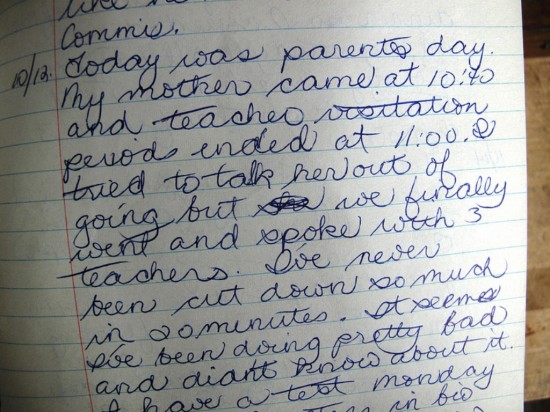 like
Commis.
10/12. Today was parents day.
My mother came at 10:40
and teacher visitation
periods ended at 11:00. I
tried to talk her out of
going but we finally
went and spoke with 3
teachers. I've never
been cut down so much
in 20 minutes. It seems
I've been doing pretty bad
and didnt know about it.
I have a test monday
in bio